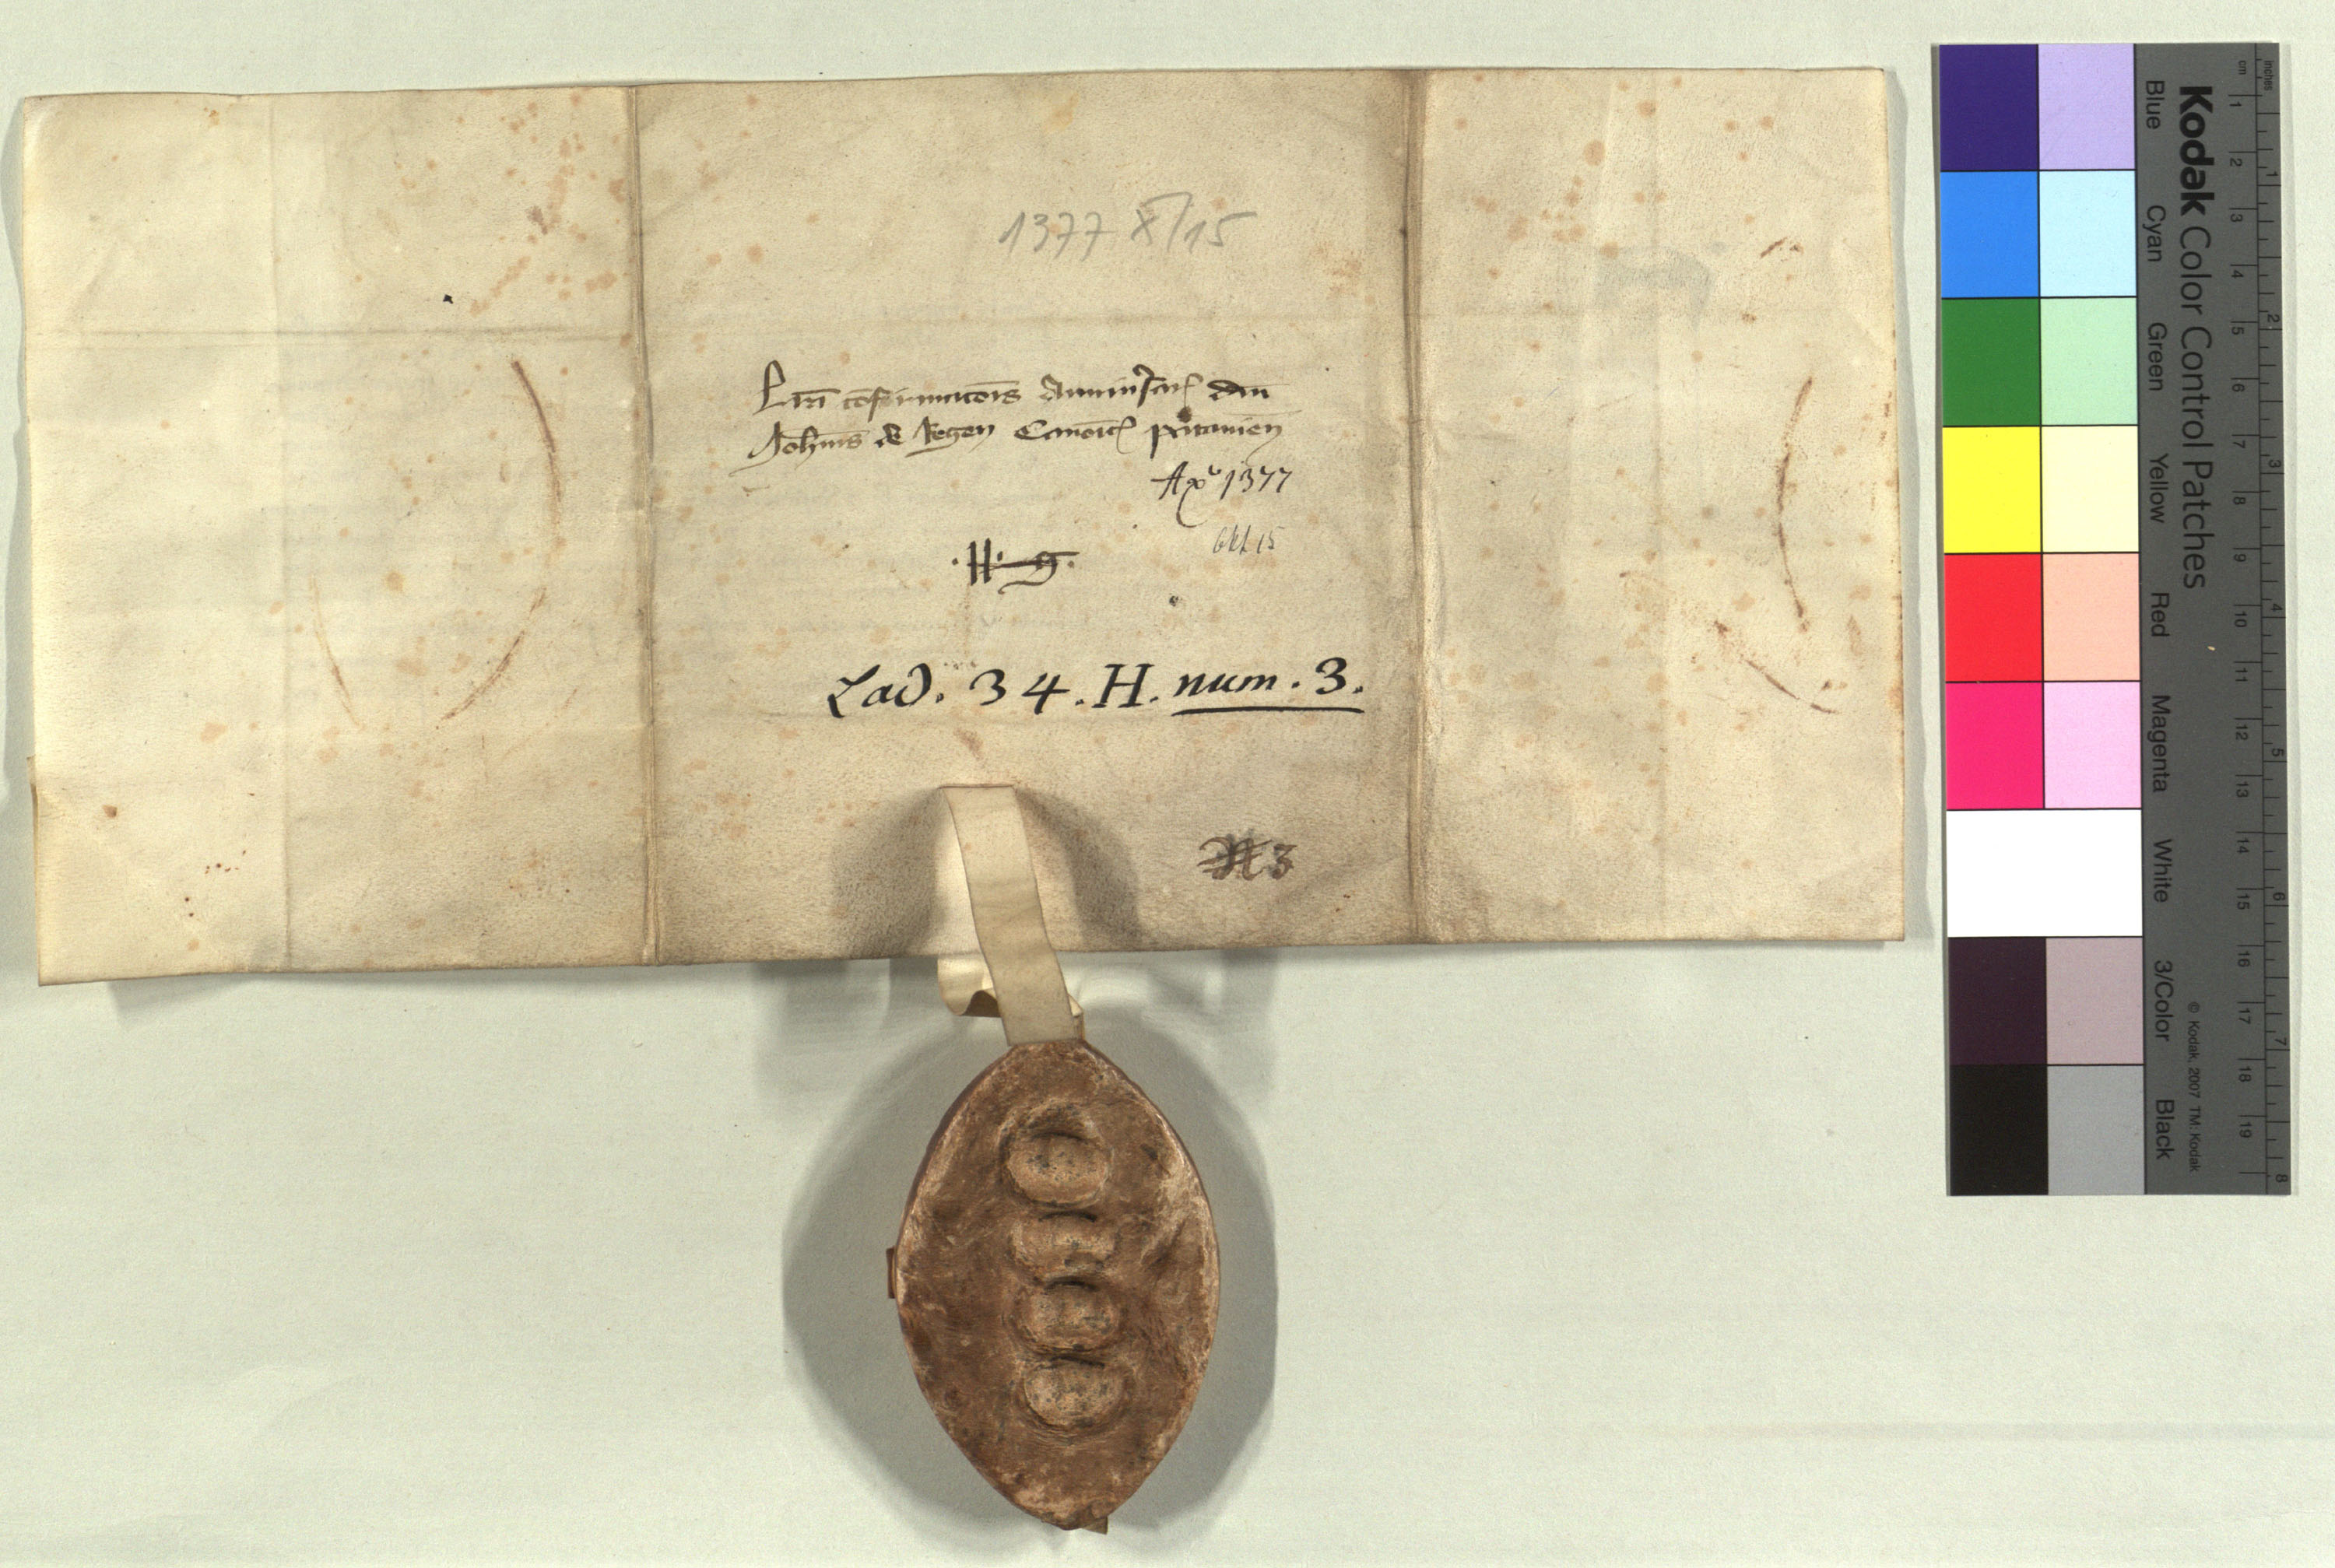 1377 X/15
Lr̄a cōfirmatōis Anniuersarȷ dn̄i
Joh̄nis de Regen Canoīcȷ patauien̄
Aº 1377
Okt 15
·H· g·
Lad. 34. H. num. 3.
N 3
Kodak Color Control Patches
Blue Cyan Green Yellow Red Magenta White 3/Color Black
© Kodak, 2007 TM: Kodak
cm 1 2 3 4 5 6 7 8 9 10 11 12 13 14 15 16 17 18 19
inches 1 2 3 4 5 6 7 8